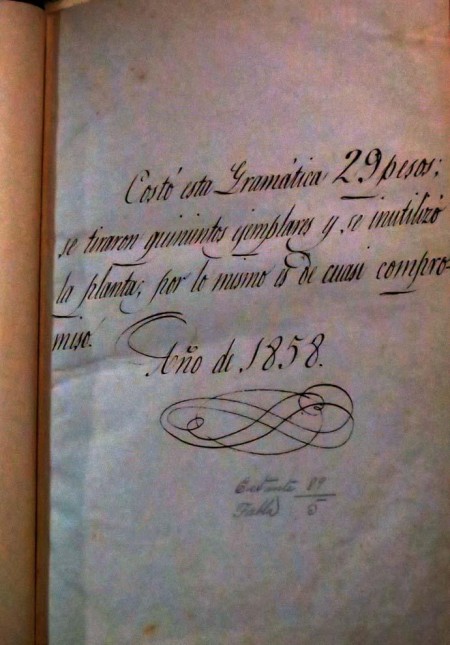 Costó esta Gramática 29 pesos;
se tiraron quinientos ejemplares y se inutilizó
la planta; por lo mismo es de cuasi compro-
miso.
Año de 1858.
Estante 89
Tabla 5